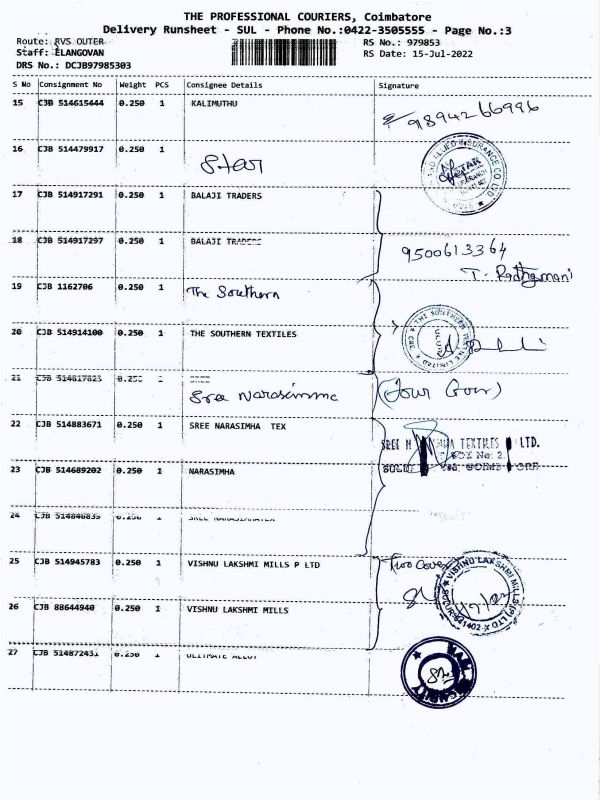 THE PROFESSIONAL COURIERS, Coimbatore
Delivery Runsheet - SUL - Phone No.:0422-3505555 - Page No.:3
Route: RVS OUTER RS No.: 979853
Staff: ELANGOVAN RS Date: 15-Jul-2022
DRS No.: DCJB97985303
S No Consignment No Weight PCS Consignee Details Signature
15 CJB 514615444 0.250 1 KALIMUTHU 9894266996
16 CJB 514479917 0.250 1
Star
17 CJB 514917291 0.250 1 BALAJI TRADERS
18 CJB 514917297 0.250 1 BALAJI TRADERS 9500613364
T. Radhamani
19 CJB 1162706 0.250 1 The Southern
20 CJB 514914100 0.250 1 THE SOUTHERN TEXTILES
21 CJB 514817823 0.250 1
Sree Narasimma (Four Cover)
22 CJB 514883671 0.250 1 SREE NARASIMHA TEX
TEXTILES LTD.
BOX No: 2
23 CJB 514689202 0.250 1 NARASIMHA
24 CJB 514840835 0.250 1 SREE NARASIMHATEX
25 CJB 514945783 0.250 1 VISHNU LAKSHMI MILLS P LTD Two Cover
VISHNU LAKSHMI MILLS (P) LTD
26 CJB 88644940 0.250 1 VISHNU LAKSHMI MILLS
27 CJB 514872431 0.250 1 ULTIMATE ALLOY